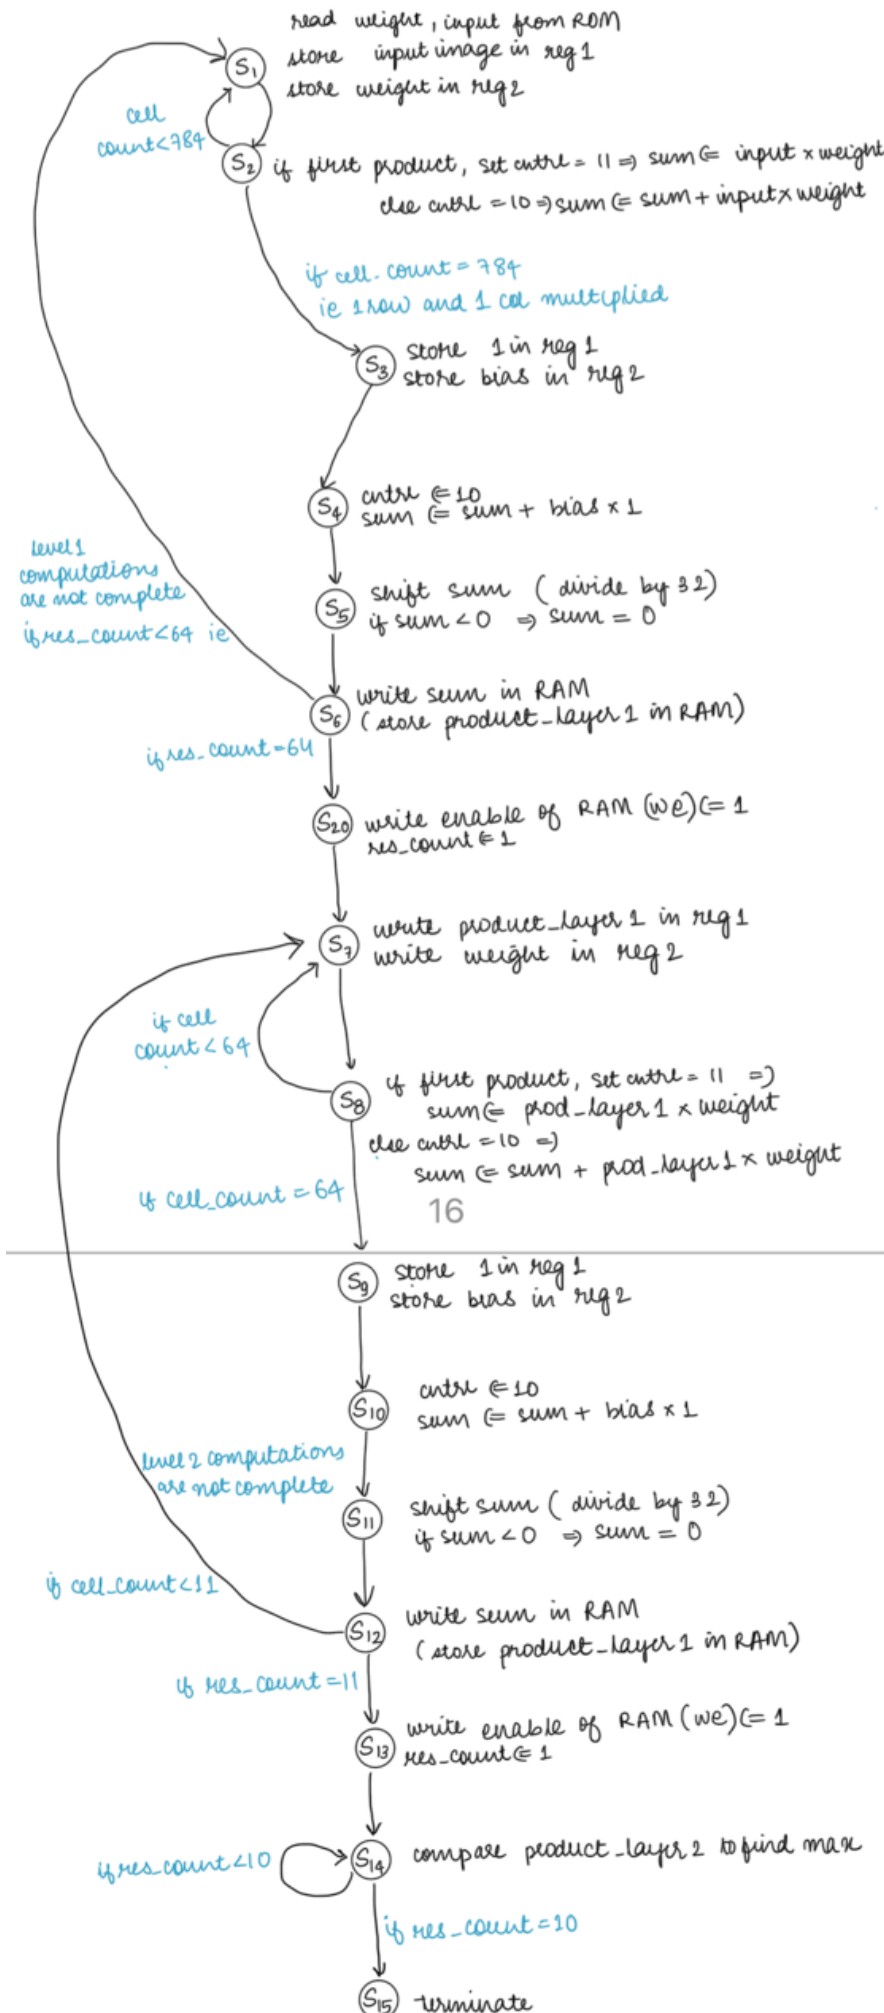 read weight, input from ROM
S1 store input image in reg 1
store weight in reg 2
cell
count<784
S2 if first product, set cntrl = 11 => sum <= input x weight
else cntrl = 10 => sum <= sum + input x weight
if cell_count = 784
ie 1 row and 1 col multiplied
S3 store 1 in reg 1
store bias in reg 2
S4 cntrl <= 10
sum <= sum + bias x 1
level 1
computations
are not complete
if res_count<64 ie
S5 shift sum (divide by 32)
if sum < 0 => sum = 0
S6 write sum in RAM
(store product_layer 1 in RAM)
if res_count=64
S20 write enable of RAM (we) <= 1
res_count <= 1
S7 write product_layer 1 in reg 1
write weight in reg 2
if cell
count<64
S8 if first product, set cntrl = 11 =>
sum <= prod_layer 1 x weight
else cntrl = 10 =>
sum <= sum + prod_layer 1 x weight
if cell_count = 64
16
S9 store 1 in reg 1
store bias in reg 2
S10 cntrl <= 10
sum <= sum + bias x 1
level 2 computations
are not complete
S11 shift sum (divide by 32)
if sum < 0 => sum = 0
if cell_count<11
S12 write sum in RAM
(store product_layer 1 in RAM)
if res_count=11
S13 write enable of RAM (we) <= 1
res_count <= 1
if res_count<10
S14 compare product_layer 2 to find max
if res_count=10
S15 terminate